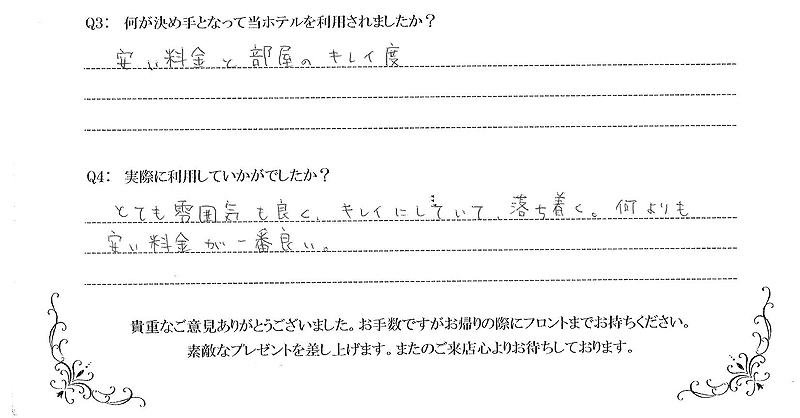 Q3: 何が決め手となって当ホテルを利用されましたか？
安い料金と部屋のキレイ度
Q4: 実際に利用していかがでしたか？
とても雰囲気も良く、キレイにしていて、落ち着く。何よりも
安い料金が一番良い。
貴重なご意見ありがとうございました。お手数ですがお帰りの際にフロントまでお持ちください。
素敵なプレゼントを差し上げます。またのご来店心よりお待ちしております。